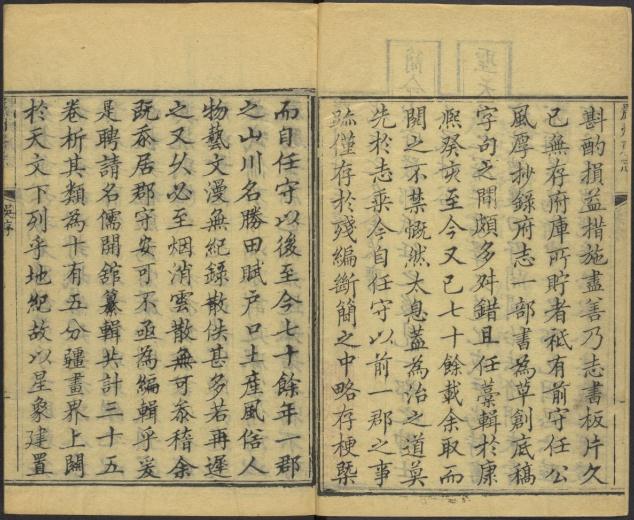 斟酌損益措施盡善乃志書板片久
已無存府庫所貯者祗有前守任公
風厚抄錄府志一部書為草創底稿
字句之間頗多舛錯且任藁輯於康
熙癸亥至今又已七十餘載余取而
閱之不禁慨然太息葢為治之道莫
先於志乘今自任守以前一郡之事
跡僅存於殘編斷簡之中略存梗槩
而自任守以後至今七十餘年一郡
之山川名勝田賦户口土產風俗人
物藝文漫無紀錄散佚甚多若再遲
之又久必至烟消雲散無可叅稽余
既忝居郡守安可不亟為編輯乎爰
是聘請名儒開舘纂輯共計三十五
卷析其類為十有五分疆畫界上關
於天文下列乎地紀故以星象建置
吳序